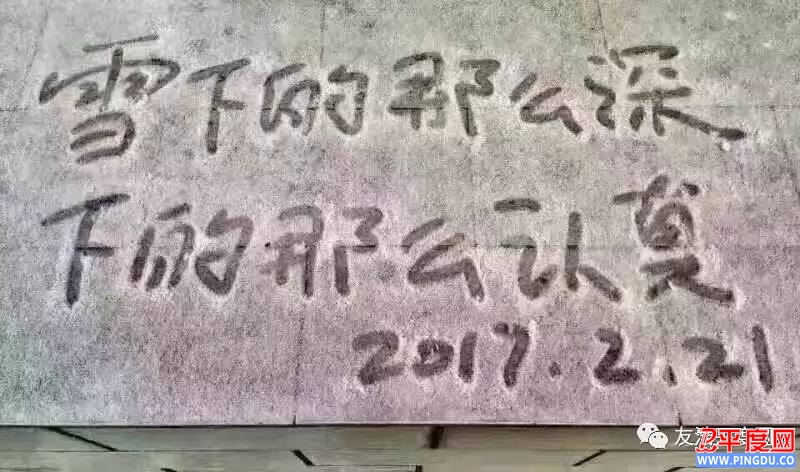 雪下的那么深
下的那么认真
2017.2.21
平度网
WWW.PINGDU.CO